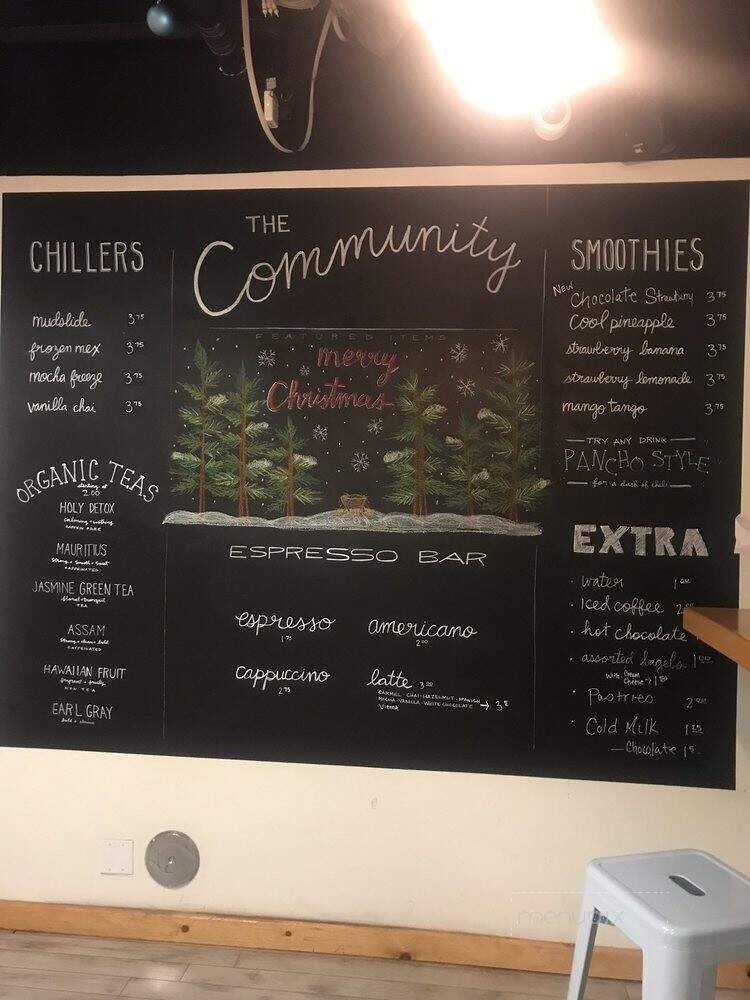 THE
Community
CHILLERS
mudslide 3.75
frozen mex 3.75
mocha freeze 3.75
vanilla chai 3.75
ORGANIC TEAS
starting at
2.00
HOLY DETOX
calming + soothing
CAFFEIN FREE
MAURITIUS
Strong + Smooth + Sweet
CAFFEINATED
JASMINE GREEN TEA
floral + tranquil
TEA
ASSAM
Strong + clean + bold
CAFFEINATED
HAWAIIAN FRUIT
fragrant + fruity
NON TEA
EARL GRAY
bold + classic
FEATURED ITEMS
merry
Christmas
ESPRESSO BAR
espresso
1.75
americano
2.00
cappuccino
2.75
latte 3.00
CARMEL · CHAI · HAZELNUT · SPANISH
MOCHA · VANILLA · WHITE CHOCOLATE
Vienna
SMOOTHIES
NEW Chocolate Strawberry 3.75
Cool pineapple 3.75
strawberry banana 3.75
strawberry lemonade 3.75
mango tango 3.75
TRY ANY DRINK
PANCHO STYLE
for a dash of chili
EXTRA
· water 1.00
· Iced coffee
· hot chocolate
· assorted bagels 1.00
with Cream
Cheese
· Pastries 2.00
· Cold Milk 1.25
— Chocolate
menupix